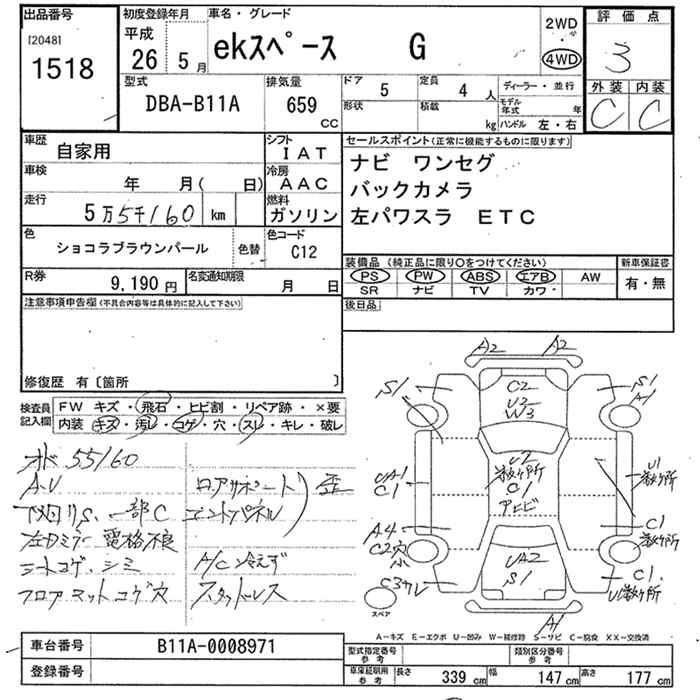 出品番号
[2048]
1518
初度登録年月
平成
26 5 月
車名・グレード
ekスペース G
2WD
・
4WD
評価点
3
外装 内装
C C
型式
DBA-B11A
排気量
659
cc
ドア 5
形状
定員 4 人
積載 kg
ディーラー・並行
モデル年式 年
ハンドル 左・右
車歴
自家用
シフト
IAT
車検
年 月( 日)
冷房
AAC
走行
5万5千160 km
燃料
ガソリン
セールスポイント(正常に機能するものに限ります)
ナビ ワンセグ
バックカメラ
左パワスラ ETC
色
ショコラブラウンパール
色替
色コード
C12
装備品 (純正品に限り○をつけてください)
PS PW ABS エアB AW
SR ナビ TV カワ
新車保証書
有・無
R券
9,190 円
名変通知期限
月 日
後日品
注意事項申告欄(不具合内容等は具体的に記入して下さい)
修復歴 有〔箇所 〕
検査員記入欄
FW キズ・飛石・ヒビ割・リペア跡・×要
内装 キズ・汚レ・コゲ・穴・スレ・キレ・破レ
オド 55160
A.U
下回りS、一部C
左ドミラー電格不良
シートコゲ、シミ
フロアマットコゲ穴
ロアサポート
エンドパネル
歪
A/C冷えず
スタッドレス
A2 A2
C2
U2
W3
S1
S1
A1
UA1
C1
U2
数ヶ所
C1
アヒビ
U1
数ヶ所
A4
C2穴
小
C1
数ヶ所
UA2
S1
C3サレ
C1.
U1数ヶ所
A1
スペア
A-キズ E-エクボ U-凹み W-補修跡 S-サビ C-腐食 XX-交換済
車台番号
B11A-0008971
登録番号
型式指定番号
参考
類別区分番号
参考
車庫証明用
参考
長さ 339 cm
幅 147 cm
高さ 177 cm